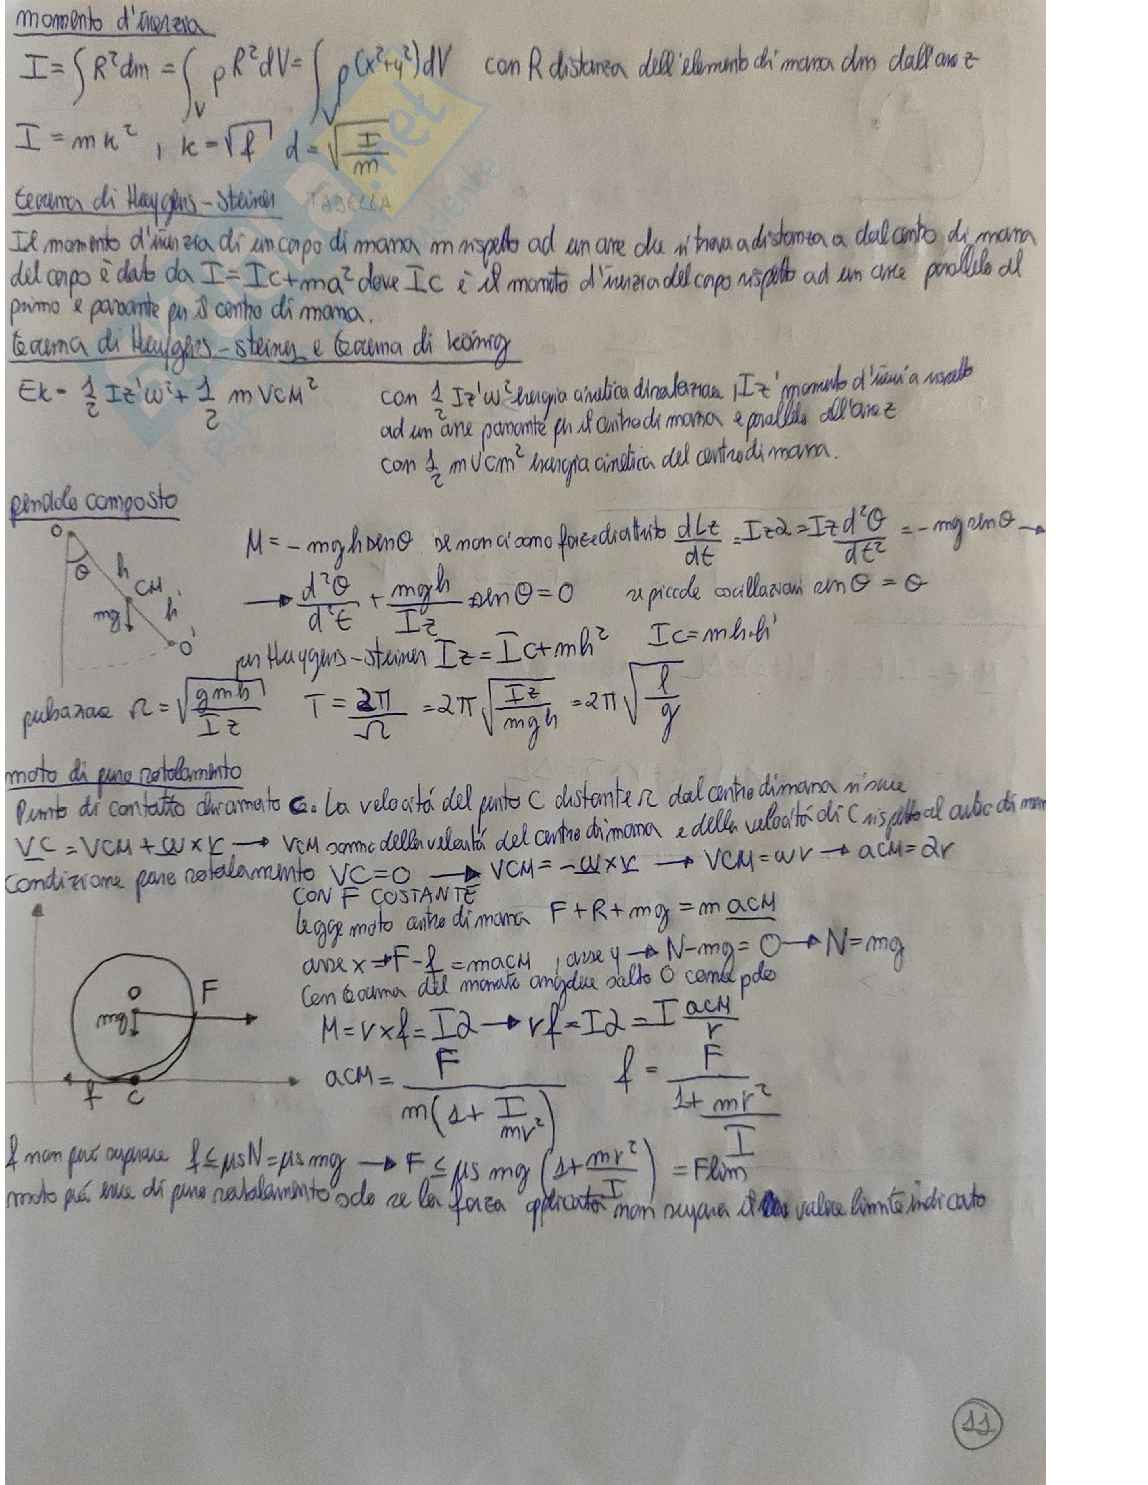 momento d'inerzia
I = ∫R²dm = ∫_V ρR²dV = ∫_V ρ(x²+y²)dV con R distanza dell'elemento di massa dm dall'asse z
I = mk² , k = √f d = √(I/m)
teorema di Huygens-Steiner TABELLA
Il momento d'inerzia di un corpo di massa m rispetto ad un asse che si trova a distanza a dal centro di massa
del corpo è dato da I = Ic+ma² dove Ic è il momento d'inerzia del corpo rispetto ad un asse parallelo al
primo e passante per il centro di massa.
teorema di Huygens-Steiner e teorema di König
Ek = 1/2 Iz'ω² + 1/2 mVCM² con 1/2 Iz'ω² energia cinetica di rotazione, Iz' momento d'inerzia rispetto
ad un asse passante per il centro di massa e parallelo all'asse z
con 1/2 mVCM² energia cinetica del centro di massa.
pendolo composto
O θ h CM mg h' O'
M = -mgh senθ se non ci sono forze di attrito dLz/dt = Izα = Iz d²θ/dt² = -mg senθ →
→ d²θ/d²t + mgh/Iz senθ = 0 se piccole oscillazioni senθ = θ
per Huygens-Steiner Iz = Ic+mh² Ic = mh·h'
pulsazione Ω = √(gmh/Iz) T = 2π/Ω = 2π√(Iz/mgh) = 2π√(l/g)
moto di puro rotolamento
Punto di contatto chiamato C. La velocitá del punto C distante r dal centro di massa si scrive
VC = VCM + ω×r → VCM somma della velocitá del centro di massa e della velocitá di C rispetto al centro di mass
Condizione puro rotolamento VC=0 → VCM = -ω×r → VCM = ωr → aCM = αr
CON F COSTANTE
legge moto centro di massa F+R+mg = m aCM
asse x → F-f = maCM , asse y → N-mg = 0 → N=mg
Con teorema del momento angolare scelto O come polo
M = r×f = Iα → rf = Iα = I aCM/r
O F mg f C
aCM = F/(m(1+I/mr²)) f = F/(1+mr²/I)
f non puó superare f ≤ μsN = μs mg → F ≤ μs mg (1+mr²/I) = Flim
moto puó essere di puro rotolamento solo se la forza applicata non supera il valore limite indicato
11